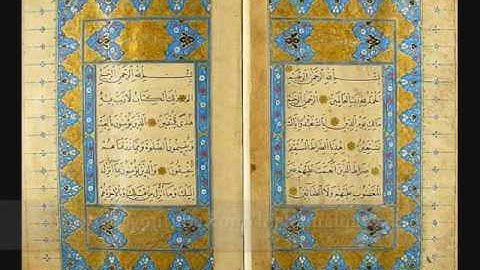 بسم الله الرحمن الرحيم
الحمد لله رب العالمين الرحمن الرحيم
مالك يوم الدين اياك نعبد واياك
نستعين اهدنا الصراط المستقيم
صراط الذين انعمت عليهم غير
المغضوب عليهم ولا الضالين
بسم الله الرحمن الرحيم
الم ذلك الكتاب لا ريب فيه
هدى للمتقين الذين يؤمنون بالغيب
ويقيمون الصلوة ومما رزقناهم
ينفقون والذين يؤمنون بما انزل
اليك وما انزل من قبلك